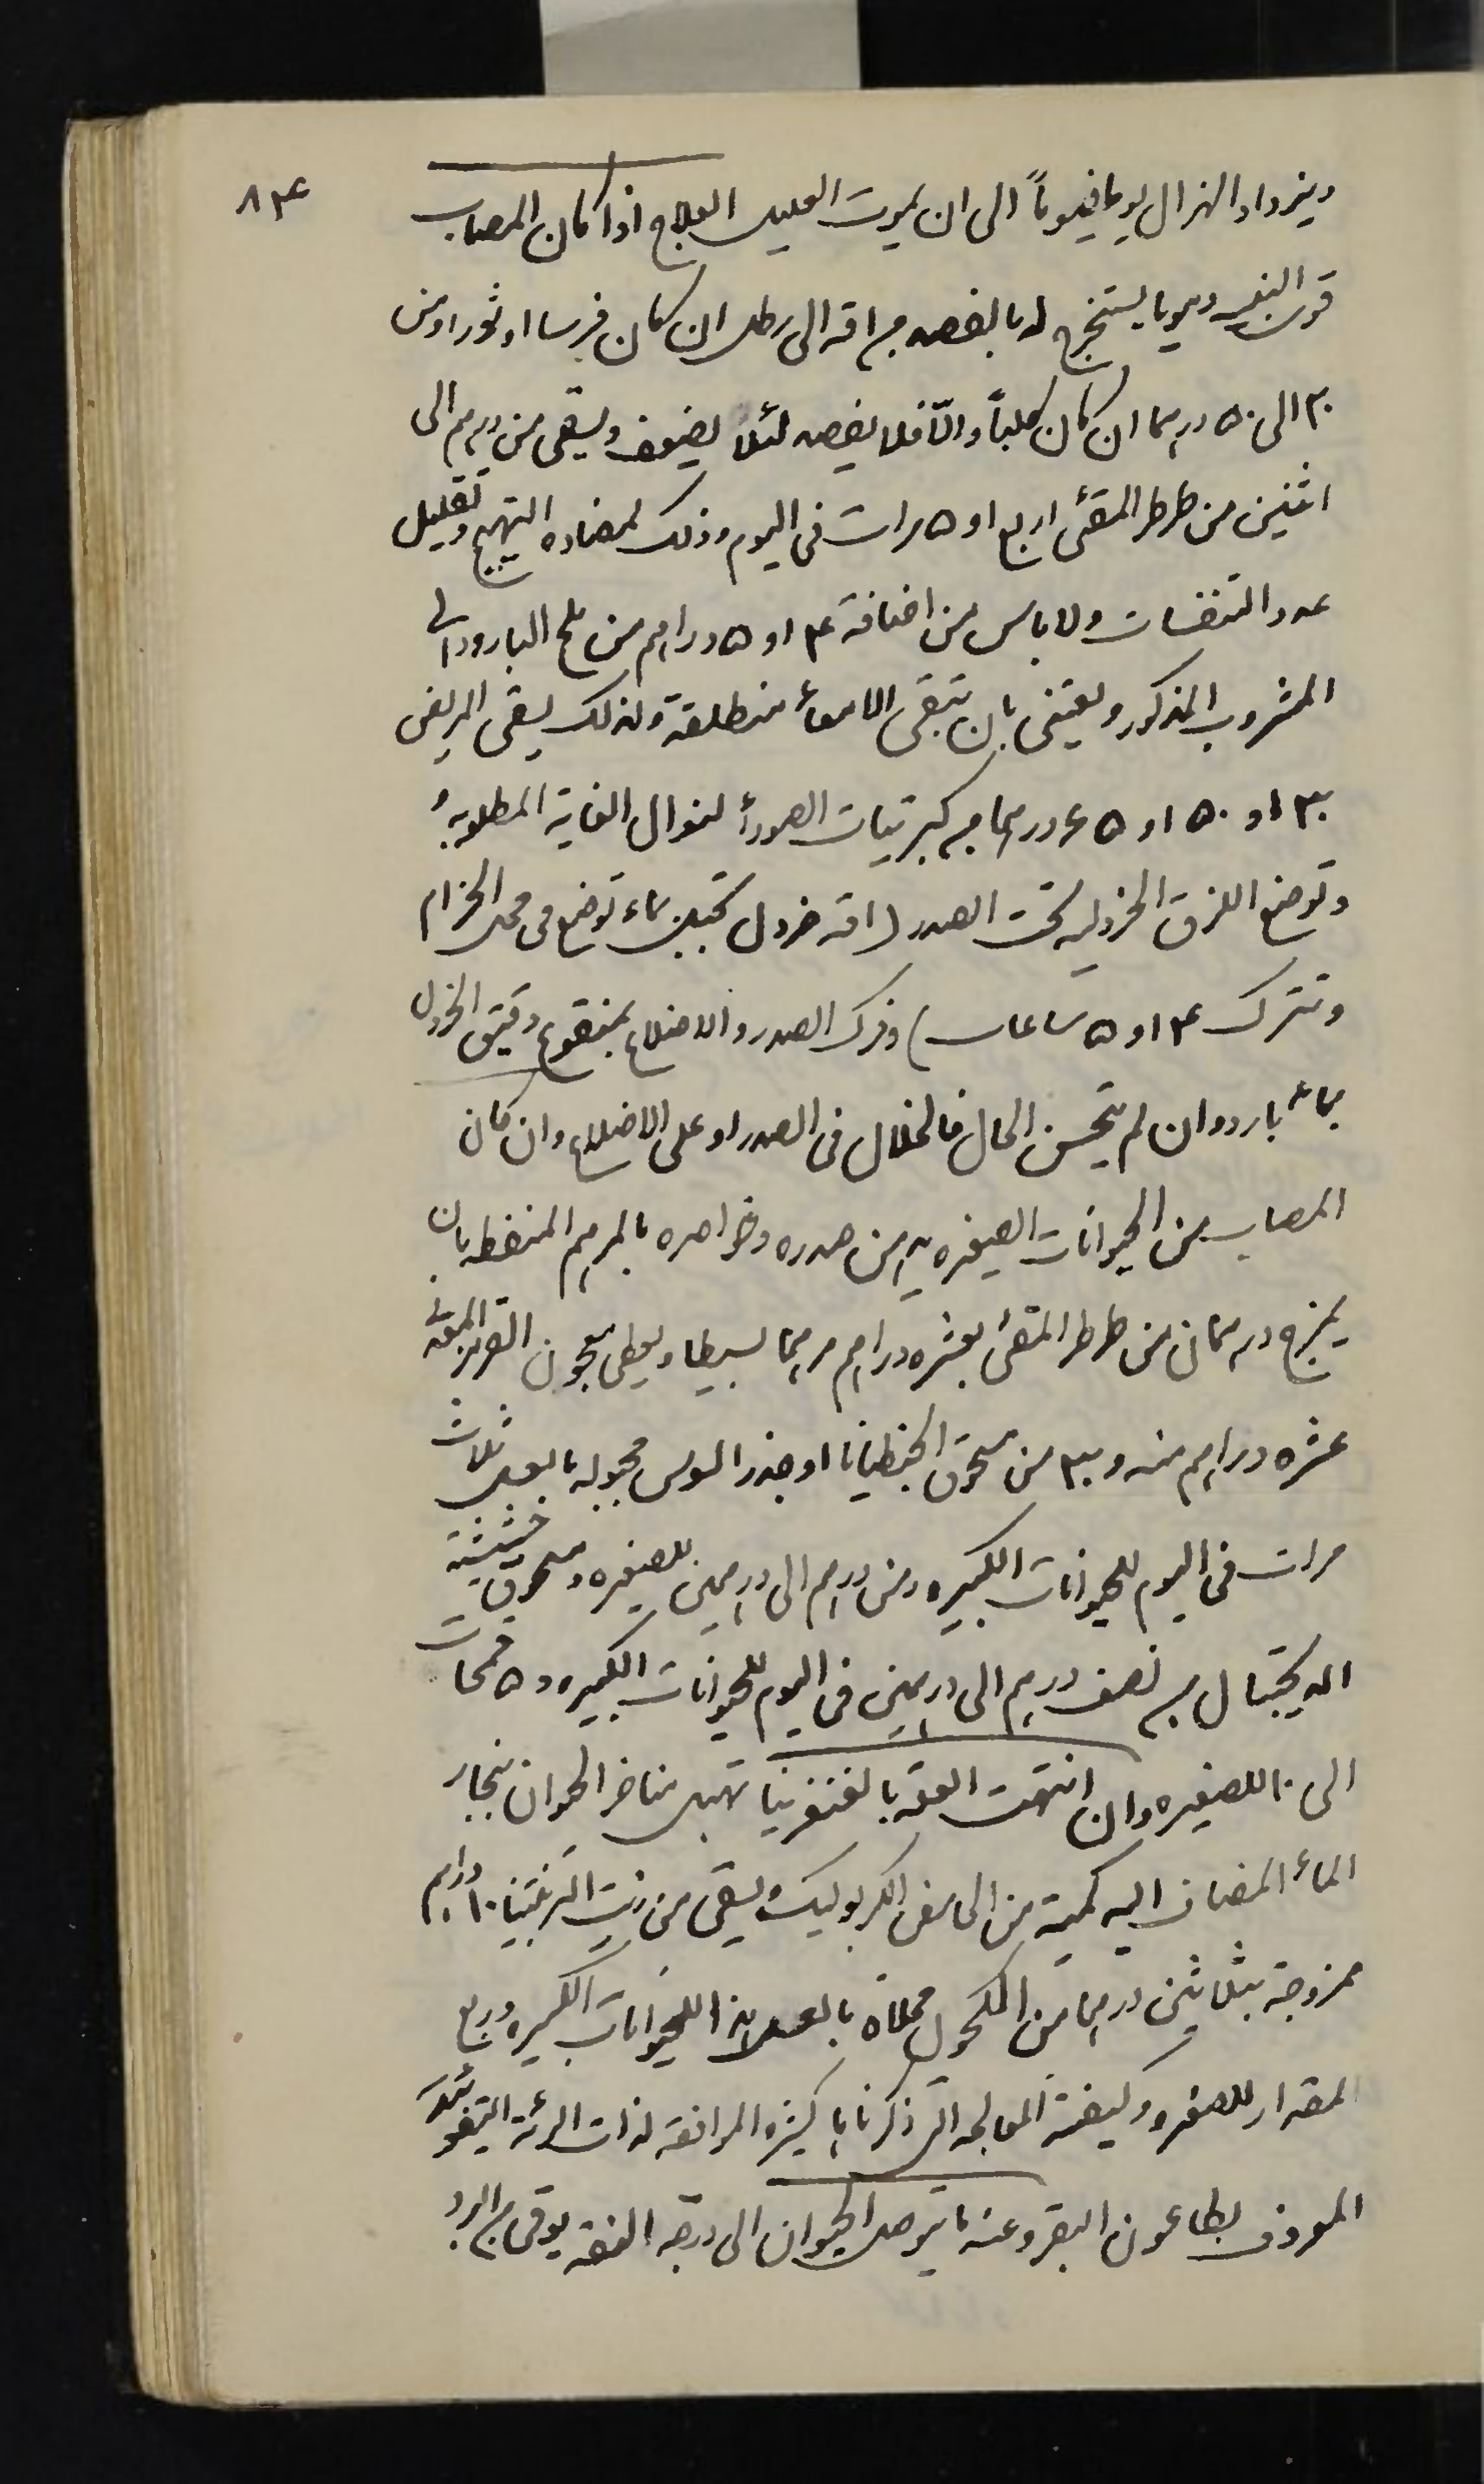 ٨٣٤
ويزداد الهزال يوما فيوماً الى ان يموت العليل العلاج اذا كان المصاب
قوى البنيه دمويا يستخرج له بالفصد من اقه الى رطل ان كان فرسا او ثورا ومن
٣٠ الى ٥٠ درهما ان كان كلباً والّا فلا يفصد لئلا يضعف ويسقى من درهم الى
اثنين من طرطر المقئ اربع او ٥ مرات فى اليوم وذلك لمضاده التهيج وتقليل
عدد التنفسات ولا باس من اضافة ٤ او ٥ دراهم من ملح البارود الى
المشروب المذكور ويعتنى بان تبقى الامعاء منطلقة ولذلك يسقى المريض
٣٠ او ٥٠ او ٦٥ درهما من كبرتيات الصودا لنوال الغاية المطلوبه
وتوضع اللزق الخردليه تحت الصدر (اقه خردل تجبل بماء توضع فى محل الحزام
وتترك ٤ او ٥ ساعات) وفرك الصدر والاضلاع بمنقوع دقيق الخردل
بماء بارد وان لم يتحسن الحال فالخلال فى الصدر او على الاضلاع وان كان
المصاب من الحيوانات الصغيره يدهن صدره وخواصره بالمرهم المنفط بان
يمزج درهمان من طرطر المقئ بعشره دراهم مرهما بسيطا ويعطى معجون القرمز المعدنى
عشره دراهم منه و ٣٠ من مسحوق الجنطيانا او جذر السوس مجبوله بالعسل ثلاث
مرات فى اليوم للحيوانات الكبيره ومن درهم الى درهمين للصغيره ومسحوق حشيشة
الديجتال من نصف درهم الى درهمين فى اليوم للحيوانات الكبيره و ٥ قمحات
الى ١٠ للصغيره وان انتهت العله بالغنغرينا تهبل مناخر الحيوان ببخار
الماء المضاف اليه كمية من الحامض الكربوليك ويسقى من زيت التربنتينا ١٠ دراهم
ممزوجة بثلاثين درهما من الكحول محلاة بالعسل هذا للحيوانات الكبيره وربع
المقدار للصغيره وكيفية المعالجه التى ذكرناها كثيره الموافقه لذات الرئة التيفوئيديه
المعروف بطاعون البقر وعندما يتوصل الحيوان الى درجة النقه يوقى من البرد